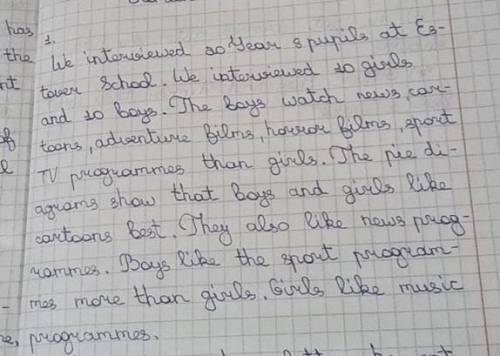 has 1.
the We interviewed 20 Year 8 pupils at Es-
nt tover School. We interviewed 10 girls
and 10 boys. The boys watch news, car-
of toons, adventure films, horror films, sport
l TV programmes than girls. The pie di-
agrams show that boys and girls like
cartoons best. They also like news prog-
rammes. Boys like the sport program-
- mes more than girls. Girls like music
re, programmes.